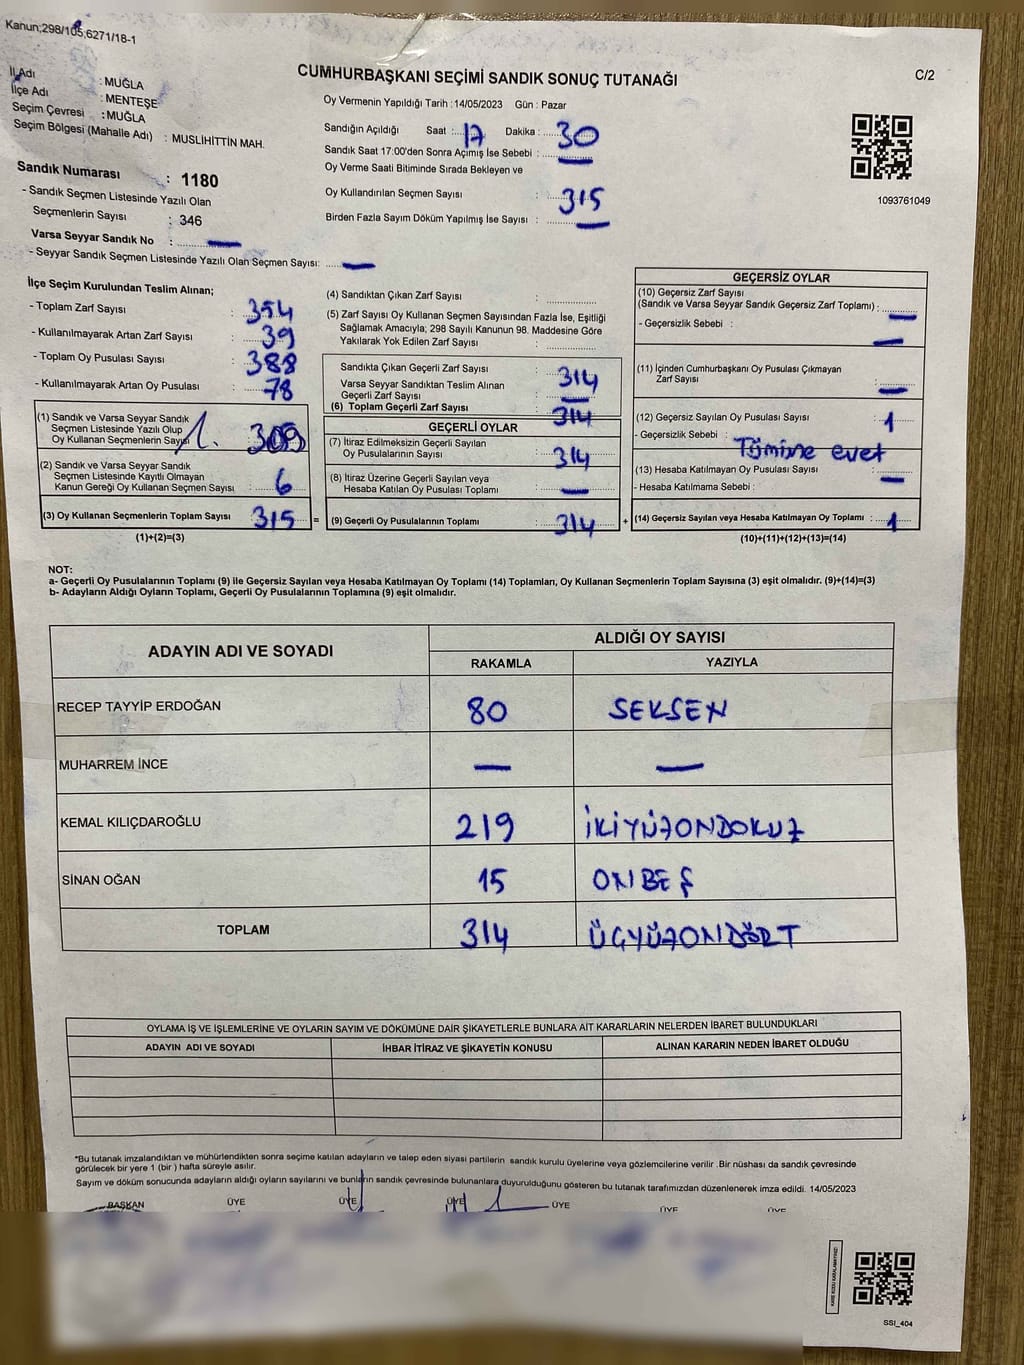 Kanun;298/105;6271/18-1
CUMHURBAŞKANI SEÇİMİ SANDIK SONUÇ TUTANAĞI
C/2
İl Adı : MUĞLA
İlçe Adı : MENTEŞE
Seçim Çevresi : MUĞLA
Seçim Bölgesi (Mahalle Adı) : MUSLİHİTTİN MAH.
Oy Vermenin Yapıldığı Tarih : 14/05/2023 Gün : Pazar
Sandığın Açıldığı Saat : 17 Dakika : 30
Sandık Saat 17:00'den Sonra Açımış İse Sebebi : —
Oy Verme Saati Bitiminde Sırada Bekleyen ve
Oy Kullandırılan Seçmen Sayısı : 315
Birden Fazla Sayım Döküm Yapılmış İse Sayısı : —
1093761049
Sandık Numarası : 1180
- Sandık Seçmen Listesinde Yazılı Olan
Seçmenlerin Sayısı : 346
Varsa Seyyar Sandık No : —
- Seyyar Sandık Seçmen Listesinde Yazılı Olan Seçmen Sayısı: —
İlçe Seçim Kurulundan Teslim Alınan;
- Toplam Zarf Sayısı : 354
- Kullanılmayarak Artan Zarf Sayısı : 39
- Toplam Oy Pusulası Sayısı : 388
- Kullanılmayarak Artan Oy Pusulası : 78
(1) Sandık ve Varsa Seyyar Sandık
Seçmen Listesinde Yazılı Olup
Oy Kullanan Seçmenlerin Sayısı 309
(2) Sandık ve Varsa Seyyar Sandık
Seçmen Listesinde Kayıtlı Olmayan
Kanun Gereği Oy Kullanan Seçmen Sayısı : 6
(3) Oy Kullanan Seçmenlerin Toplam Sayısı : 315 =
(1)+(2)=(3)
(4) Sandıktan Çıkan Zarf Sayısı :
(5) Zarf Sayısı Oy Kullanan Seçmen Sayısından Fazla İse, Eşitliği
Sağlamak Amacıyla; 298 Sayılı Kanunun 98. Maddesine Göre
Yakılarak Yok Edilen Zarf Sayısı :
Sandıkta Çıkan Geçerli Zarf Sayısı : 314
Varsa Seyyar Sandıktan Teslim Alınan
Geçerli Zarf Sayısı : —
(6) Toplam Geçerli Zarf Sayısı : 314
GEÇERLİ OYLAR
(7) İtiraz Edilmeksizin Geçerli Sayılan
Oy Pusulalarının Sayısı : 314
(8) İtiraz Üzerine Geçerli Sayılan veya
Hesaba Katılan Oy Pusulası Toplamı : —
(9) Geçerli Oy Pusulalarının Toplamı : 314 +
GEÇERSİZ OYLAR
(10) Geçersiz Zarf Sayısı
(Sandık ve Varsa Seyyar Sandık Geçersiz Zarf Toplamı) : —
- Geçersizlik Sebebi : —
(11) İçinden Cumhurbaşkanı Oy Pusulası Çıkmayan
Zarf Sayısı : —
(12) Geçersiz Sayılan Oy Pusulası Sayısı : 1
- Geçersizlik Sebebi : Tümüne evet
(13) Hesaba Katılmayan Oy Pusulası Sayısı : —
- Hesaba Katılmama Sebebi :
(14) Geçersiz Sayılan veya Hesaba Katılmayan Oy Toplamı : 1
(10)+(11)+(12)+(13)=(14)
NOT:
a- Geçerli Oy Pusulalarının Toplamı (9) ile Geçersiz Sayılan veya Hesaba Katılmayan Oy Toplamı (14) Toplamları, Oy Kullanan Seçmenlerin Toplam Sayısına (3) eşit olmalıdır. (9)+(14)=(3)
b- Adayların Aldığı Oyların Toplamı, Geçerli Oy Pusulalarının Toplamına (9) eşit olmalıdır.
ADAYIN ADI VE SOYADI ALDIĞI OY SAYISI
RAKAMLA YAZIYLA
RECEP TAYYİP ERDOĞAN 80 SEKSEN
MUHARREM İNCE — —
KEMAL KILIÇDAROĞLU 219 İKİYÜZONDOKUZ
SİNAN OĞAN 15 ONBEŞ
TOPLAM 314 ÜÇYÜZONDÖRT
OYLAMA İŞ VE İŞLEMLERİNE VE OYLARIN SAYIM VE DÖKÜMÜNE DAİR ŞİKAYETLERLE BUNLARA AİT KARARLARIN NELERDEN İBARET BULUNDUKLARI
ADAYIN ADI VE SOYADI İHBAR İTİRAZ VE ŞİKAYETİN KONUSU ALINAN KARARIN NEDEN İBARET OLDUĞU
*Bu tutanak imzalandıktan ve mühürlendikten sonra seçime katılan adayların ve talep eden siyasi partilerin sandık kurulu üyelerine veya gözlemcilerine verilir .Bir nüshası da sandık çevresinde
görülecek bir yere 1 (bir ) hafta süreyle asılır.
Sayım ve döküm sonucunda adayların aldığı oyların sayılarını ve bunların sandık çevresinde bulunanlara duyurulduğunu gösteren bu tutanak tarafımızdan düzenlenerek imza edildi. 14/05/2023
BAŞKAN ÜYE ÜYE ÜYE ÜYE ÜYE ÜYE
SSI_404